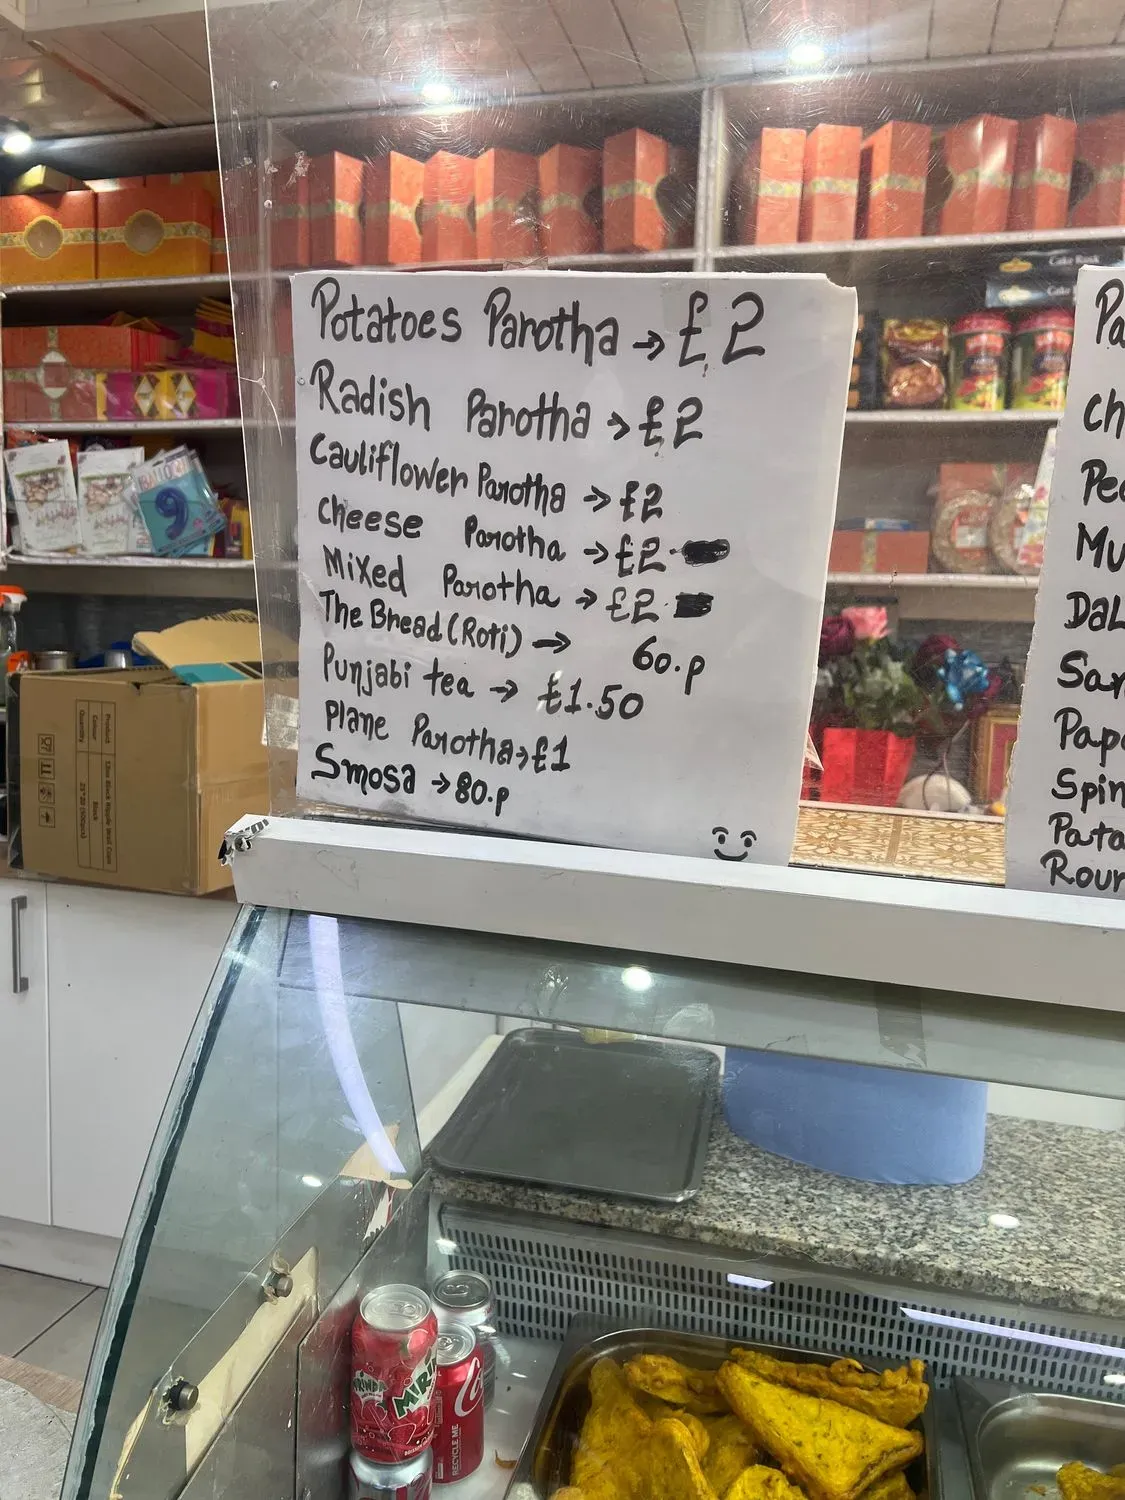 Potatoes Parotha → £2
Radish Parotha → £2
Cauliflower Parotha → £2
cheese Parotha → £2
Mixed Parotha → £2
The Bread (Roti) → 60.p
Punjabi tea → £1.50
Plane Parotha → £1
Smosa → 80.p
Pa
Ch
Pe
Mu
DaL
Sa
Pap
Spin
Pata
Roun
Cake Rusk
Cake
9
Product
Colour
Black
Quantity
MIRINDA
MIRI
RECYCLE ME